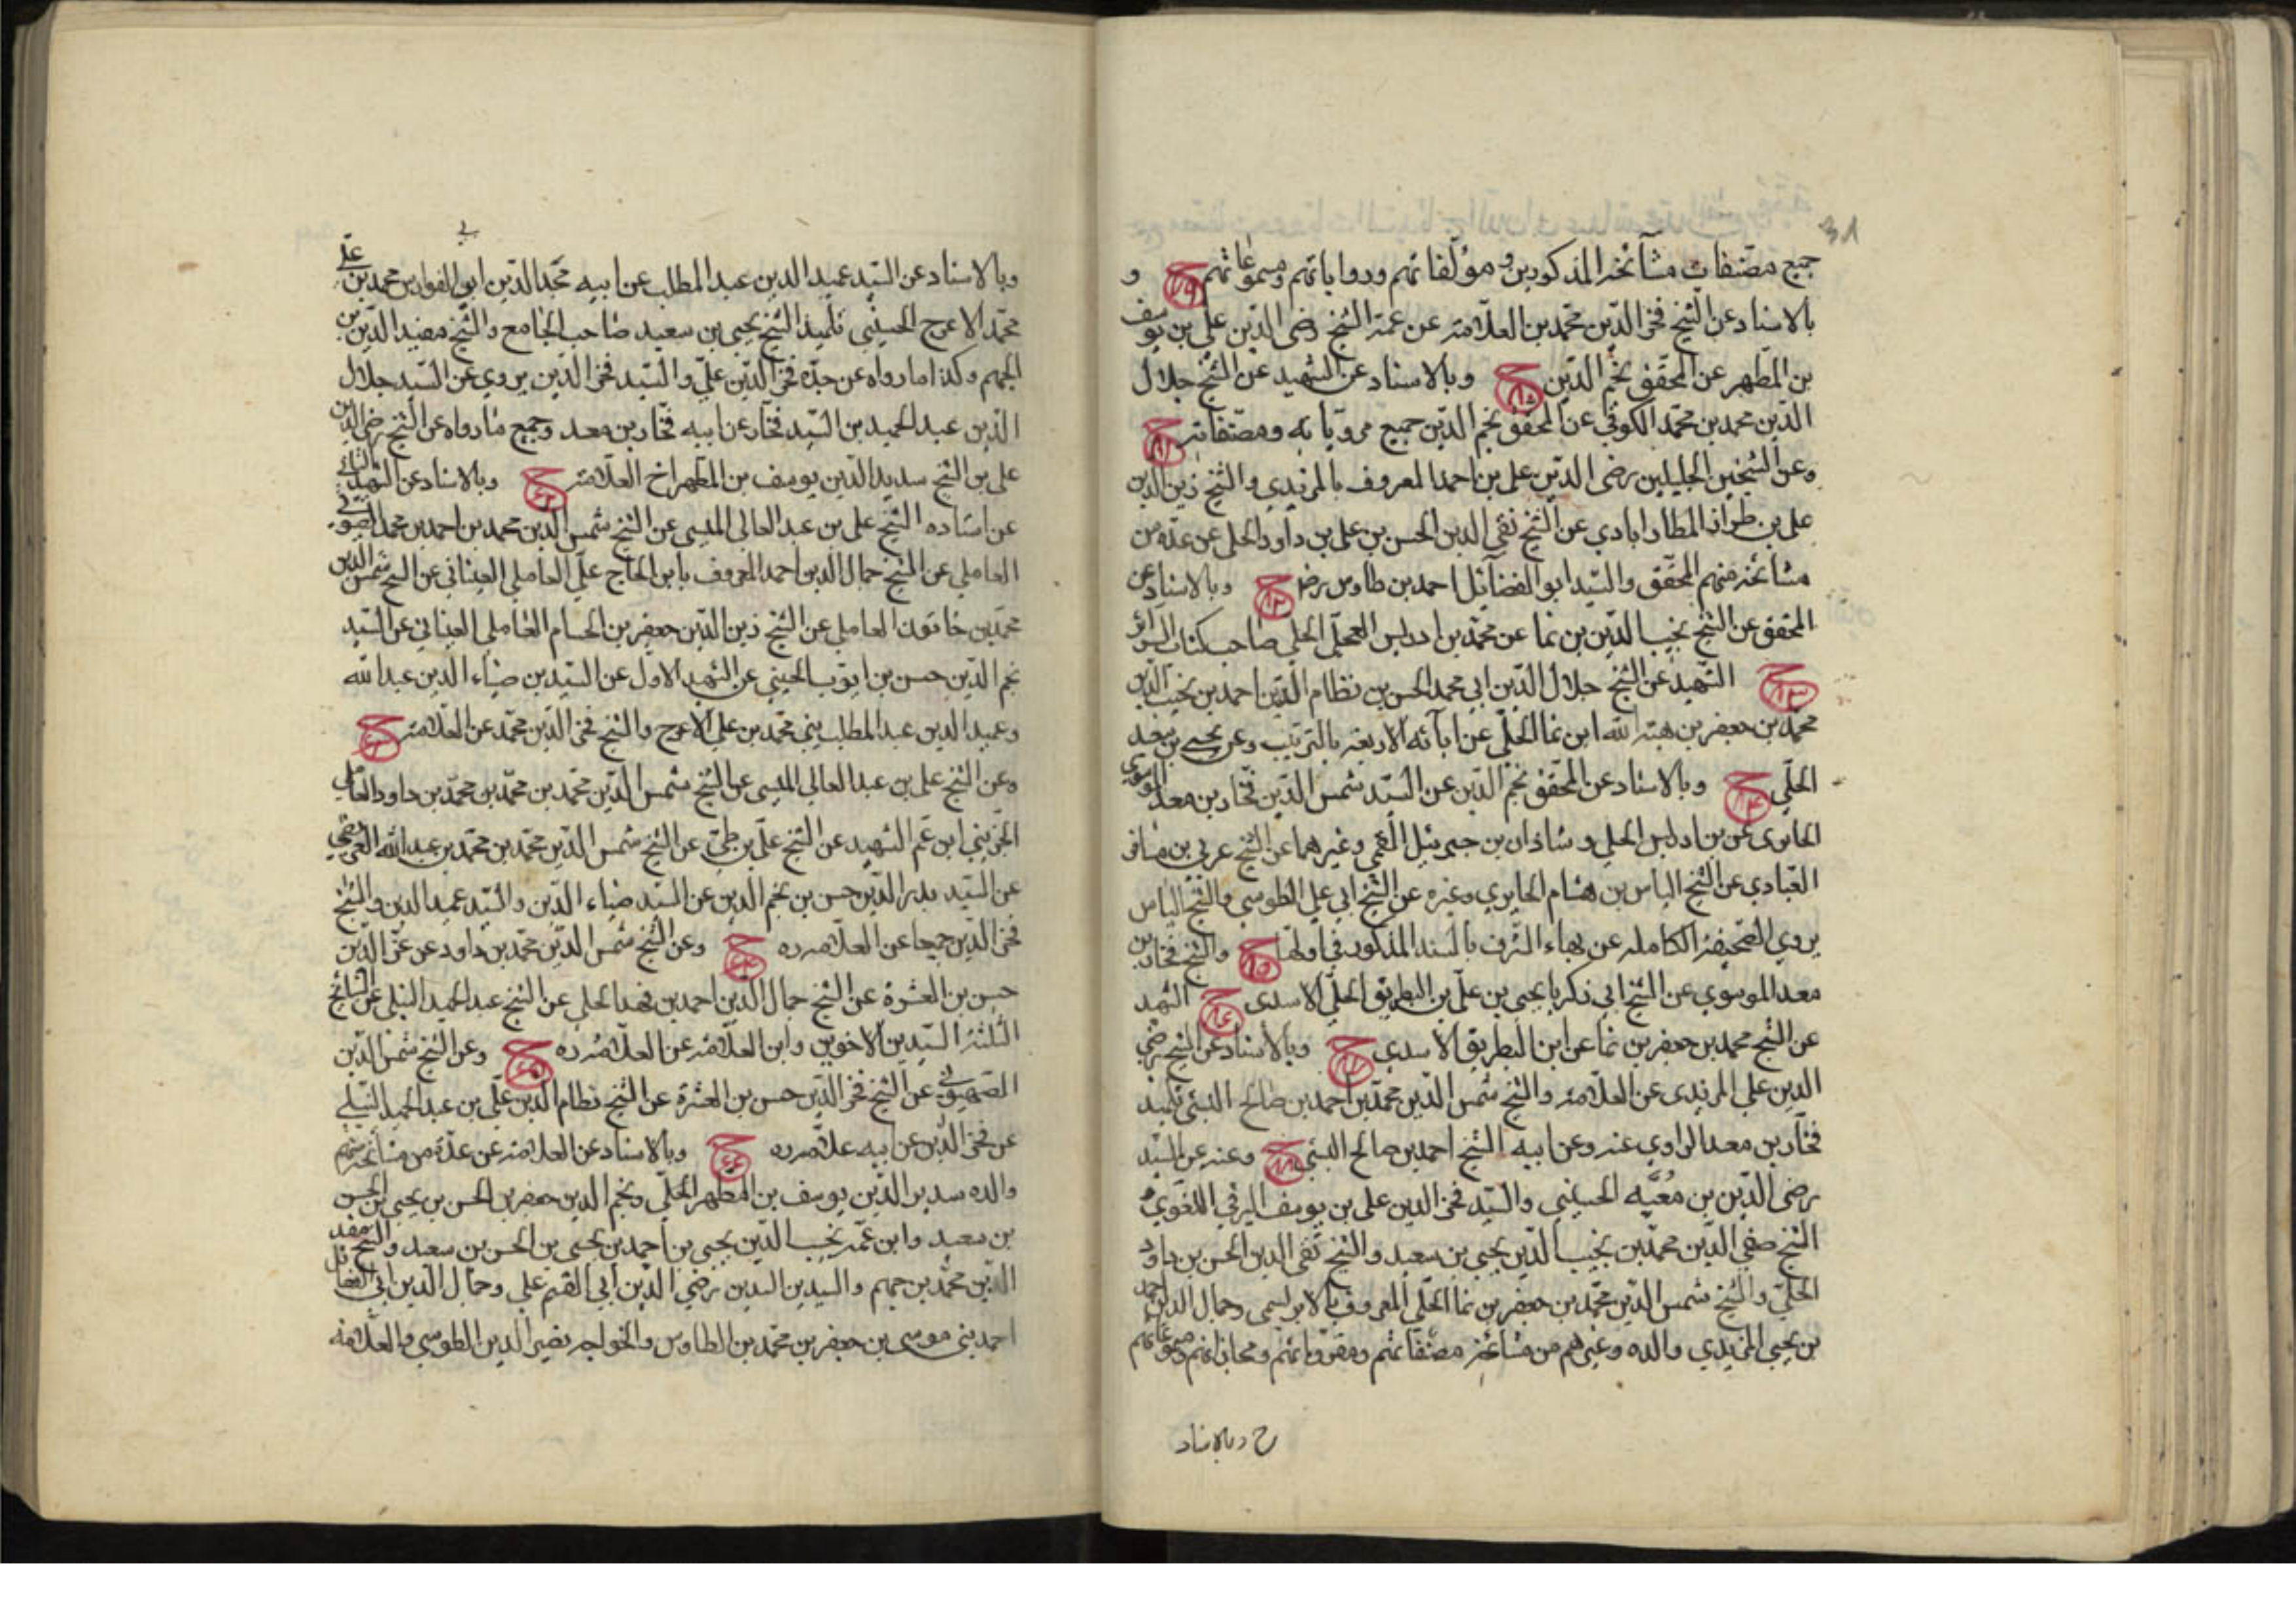 جميع مصنفات مشائخه المذكورين و مؤلفاتهم ورواياتهم ومسموعاتهم ح و
بالاسناد عن الشيخ فخر الدين محمد بن العلامة عن عمه الشيخ رضى الدين على بن يوسف
بن المطهر عن المحقق نجم الدين ح وبالاسناد عن الشهيد عن الشيخ جلال
الدين محمد بن محمد الكوفى عن المحقق نجم الدين جميع مروياته ومصنفاته ح
وعن الشيخين الجليلين رضى الدين على بن احمد المعروف بالمزيدي والشيخ زين الدين
على بن طراز المطارابادي عن الشيخ تقى الدين الحسن بن على بن داود الحلى عن عدة من
مشائخه منهم المحقق والسيد ابو الفضائل احمد بن طاوس رضه ح وبالاسناد عن
المحقق عن الشيخ نجيب الدين بن نما عن محمد بن ادريس العجلى الحلى صاحب كتاب السرائر
ح الشهيد عن الشيخ جلال الدين ابى محمد الحسن بن نظام الدين احمد بن نجيب الدين
محمد بن جعفر بن هبة الله ابن نما الحلى عن ابائه الاربعة بالترتيب وعن يحيى بن سعيد
الحلى ح وبالاسناد عن المحقق نجم الدين عن السيد شمس الدين فخار بن معد الموسوي
الحايرى عن بن ادريس الحلى و شاذان بن جبرئيل القمى وغيرهما عن الشيخ عربى بن مسافر
العبادي عن الشيخ الياس بن هشام الحايري وغيره عن الشيخ ابي على الطوسي والشيخ الياس
يروي الصحيفة الكاملة عن بهاء الشرف بالسند المذكور في اولها ح والشيخ فخار بن
معد الموسوي عن الشيخ ابي زكريا يحيى بن على بن البطريق الحلى الاسدى ح الشهيد
عن الشيخ محمد بن جعفر بن نما عن ابن البطريق الاسدي ح وبالاسناد عن الشيخ رضي
الدين على المزيدى عن العلامة والشيخ شمس الدين محمد بن احمد بن صالح السيبى تلميذ
فخار بن معد الراوي عنه وعن ابيه الشيخ احمد بن صالح السيبى ح وعنه عن السيد
رضى الدين بن معيه الحسيني والسيد فخر الدين على بن يوسف البرقي اللغوي
الشيخ صفي الدين محمد بن نجيب الدين يحيى بن سعيد والشيخ تقى الدين الحسن بن داود
الحلى والشيخ شمس الدين محمد بن جعفر بن نما الحلى المعروف بالابريسمى وجمال الدين احمد
بن يحيى المزيدي والده وغيرهم من مشائخه مصنفاتهم ومقرواتهم ومجازاتهم ومسموعاتهم
ح وبالاسناد
وبالاسناد عن السيد عميد الدين عبد المطلب عن ابيه مجد الدين ابى الفوارس محمد بن على
محمد الاعرج الحسينى تلميذ الشيخ يحيى بن سعيد صاحب الجامع والشيخ مفيد الدين بن
الجهم وكذا ما رواه عن جده فخر الدين على والسيد فخر الدين يروي عن السيد جلال
الدين عبد الحميد بن السيد فخار عن ابيه فخار بن معد وجميع ما رواه عن الشيخ رضى الدين
على بن الشيخ سديد الدين يوسف بن المطهر اخ العلامة ح وبالاسناد عن الشهيد الثانى
عن استاده الشيخ على بن عبد العالى الميسى عن الشيخ شمس الدين محمد بن احمد بن محمد الصهيونى
العاملى عن الشيخ جمال الدين احمد المعروف بابن الحاج على العاملى العيناثى عن الشيخ شمس الدين
محمد بن خاتون العاملى عن الشيخ زين الدين جعفر بن الحسام العاملى العيناثي عن السيد
نجم الدين حسن بن ايوب الحسينى عن الشهيد الاول عن السيدين ضياء الدين عبد الله
وعميد الدين عبد المطلب بنى محمد بن على الاعرج والشيخ فخر الدين محمد عن العلامة ح
وعن الشيخ على بن عبد العالى الميسى عن الشيخ شمس الدين محمد بن محمد بن محمد بن داود العاملى
الجزيني ابن عم الشهيد عن الشيخ على بن طى عن الشيخ شمس الدين محمد بن محمد بن عبد الله العريضى
عن السيد بدر الدين حسن بن نجم الدين عن السيد ضياء الدين والسيد عميد الدين والشيخ
فخر الدين جميعا عن العلامة ره ح وعن الشيخ شمس الدين محمد بن داود عن عز الدين
حسن بن العشرة عن الشيخ جمال الدين احمد بن فهد الحلى عن الشيخ عبد الحميد النيلى عن المشائخ
الثلثة السيدين الاخوين وابن العلامة عن العلامة ره ح وعن الشيخ شمس الدين
الصهيونى عن الشيخ فخر الدين حسن بن العشرة عن الشيخ نظام الدين على بن عبد الحميد النيلى
عن فخر الدين عن ابيه علامه ره ح وبالاسناد عن العلامة عن عدة من مشائخه منهم
والده سديد الدين يوسف بن المطهر الحلى ونجم الدين جعفر بن الحسن بن يحيى بن الحسن
بن سعيد وابن عمه نجيب الدين يحيى بن احمد بن يحيى بن الحسن بن سعيد والشيخ مفيد
الدين محمد بن جهيم والسيدين السندين رضي الدين ابي القسم على وجمال الدين ابى الفضائل
احمد بنى موسى بن جعفر بن محمد بن الطاوس والخواجه نصير الدين الطوسي والعلامة